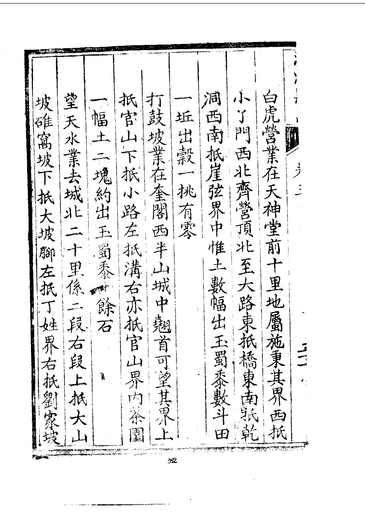 卷三
白虎營業在天神堂前十里地屬施秉其界西抵
小了門西北齊營頂北至大路東抵橋東南抵乾
洞西南抵崖弦界中惟土數幅出玉蜀黍數斗田
一坵出穀一挑有零
打鼓坡業在奎閣西半山城中翹首可望其界上
抵官山下抵小路左抵溝右亦抵官山界内茶園
一幅土二塊約出玉蜀黍餘石
望天水業去城北二十里係二段右段上抵大山
坡碓窩坡下抵大坡腳左抵丁姓界右抵劉家坡